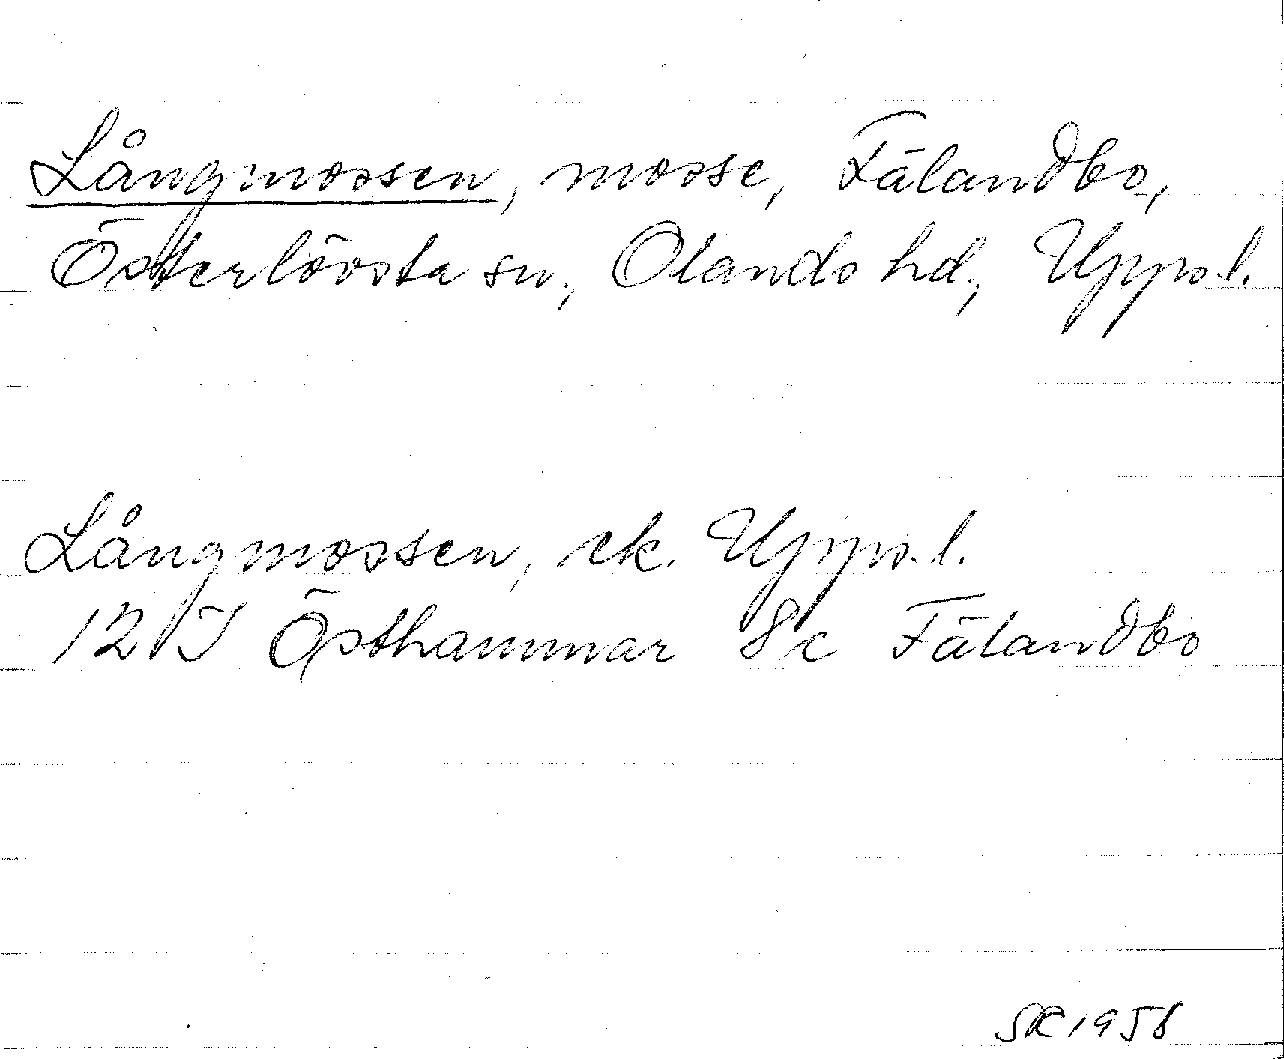 Långmossen, mosse, Fälandbo,
Österlövsta sn., Olands hd., Upps.l.
Långmossen, ek. Upps.l.
12 I Östhammar 8c Fälandbo
SR 1958